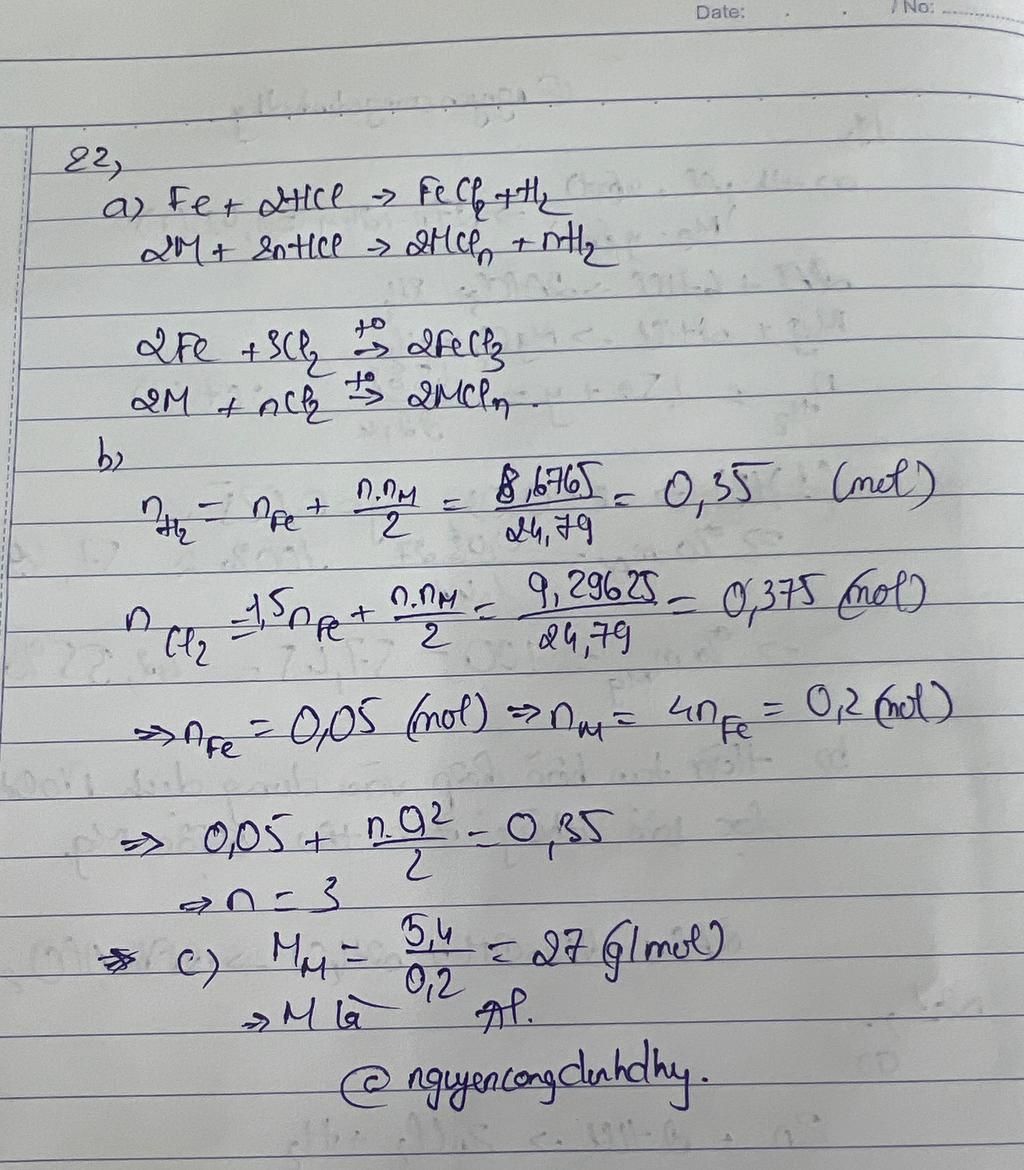 Date: . . / No: ...............
22,
a) Fe + 2HCl → FeCl₂ + H₂
2M + 2nHCl → 2MClₙ + nH₂
2Fe + 3Cl₂ t°→ 2FeCl₃
2M + nCl₂ t°→ 2MClₙ.
b)
n_H₂ = n_Fe + n.n_M/2 = 8,6765/24,79 = 0,35 (mol)
n_Cl₂ = 1,5n_Fe + n.n_M/2 = 9,29625/24,79 = 0,375 (mol)
⇒ n_Fe = 0,05 (mol) ⇒ n_M = 4n_Fe = 0,2 (mol)
⇒ 0,05 + n.0,2/2 = 0,35
⇒ n = 3
c) M_M = 5,4/0,2 = 27 (g/mol)
⇒ M là Al.
@nguyencongdinhdhy.